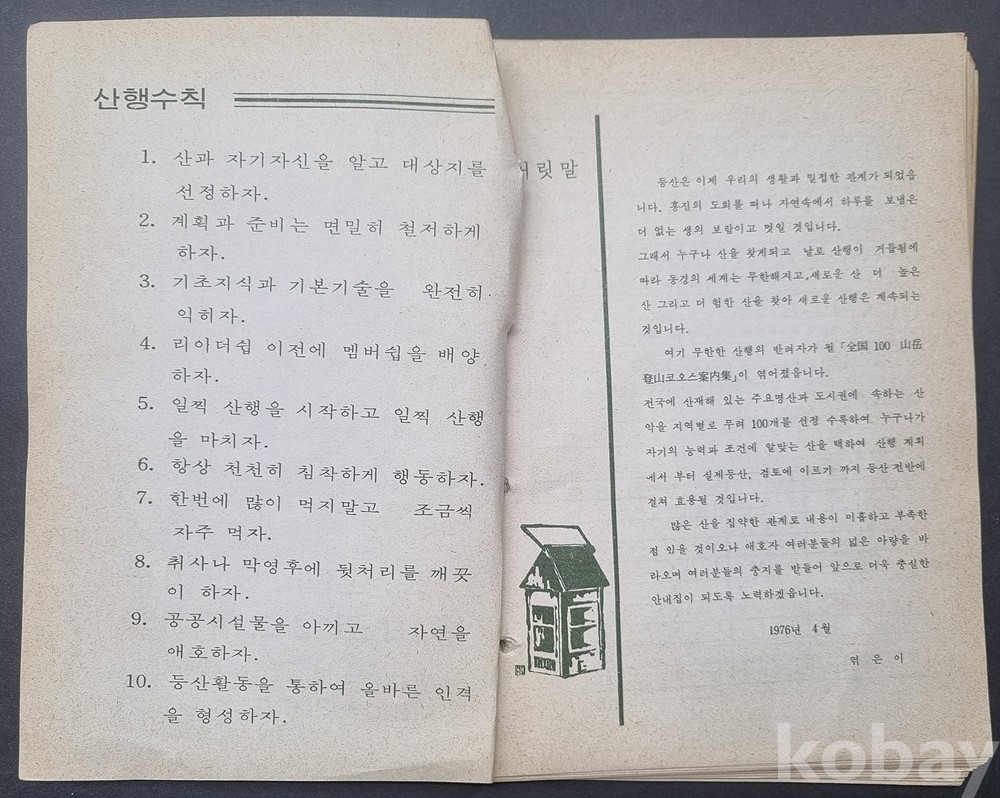 산행수칙
1. 산과 자기자신을 알고 대상지를
선정하자.
2. 계획과 준비는 면밀히 철저하게
하자.
3. 기초지식과 기본기술을 완전히
익히자.
4. 리아더쉽 이전에 멤버쉽을 배양
하자.
5. 일찍 산행을 시작하고 일찍 산행
을 마치자.
6. 항상 천천히 침착하게 행동하자.
7. 한번에 많이 먹지말고 조금씩
자주 먹자.
8. 취사나 막영후에 뒷처리를 깨끗
이 하자.
9. 공공시설물을 아끼고 자연을
애호하자.
10. 등산활동을 통하여 올바른 인격
을 형성하자.
머릿말
등산은 이제 우리의 생활과 밀접한 관계가 되었읍
니다. 홍진의 도회를 떠나 자연속에서 하루를 보냄은
더 없는 생의 보람이고 멋일 것입니다.
그래서 누구나 산을 찾게되고 날로 산행이 거듭됨에
따라 동경의 세계는 무한해지고,새로운 산 더 높은
산 그리고 더 험한 산을 찾아 새로운 산행은 계속되는
것입니다.
여기 무한한 산행의 반려자가 될 「全国100 山岳
登山코오스案内集」이 엮어졌읍니다.
전국에 산재해 있는 주요명산과 도시권에 속하는 산
악을 지역별로 무려 100개를 선정 수록하여 누구나가
자기의 능력과 조건에 알맞는 산을 택하여 산행 계획
에서 부터 실제등산, 검토에 이르기 까지 등산 전반에
걸쳐 효용될 것입니다.
많은 산을 집약한 관계로 내용이 미흡하고 부족한
점 있을 것이오나 애호자 여러분들의 넓은 아량을 바
라오며 여러분들의 충지를 받들어 앞으로 더욱 충실한
안내집이 되도록 노력하겠읍니다.
1976년 4월
엮은이
kobay